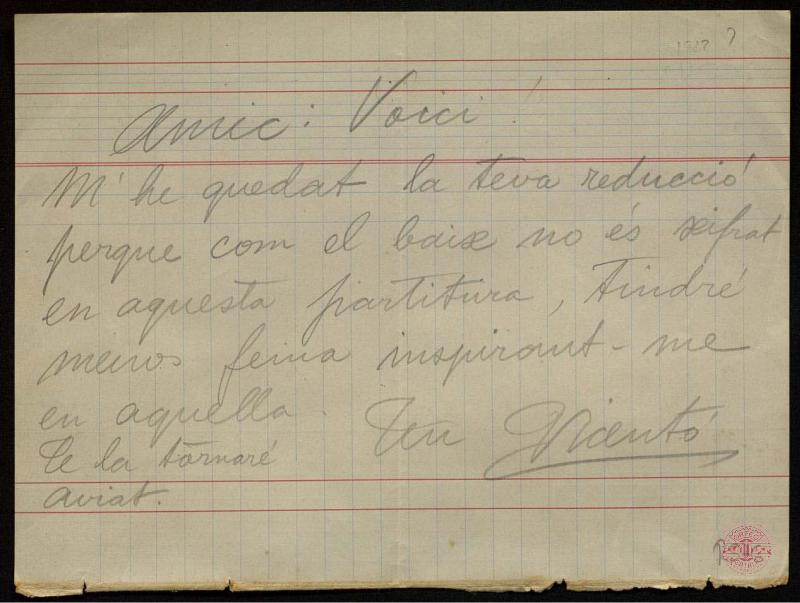 Amic: Voici!
M'he quedat la teva reducció
perque com el baix no és xifrat
en aquesta partitura, tindré
menos feina inspirant-me
en aquella. Teu
Te la tornaré
aviat.